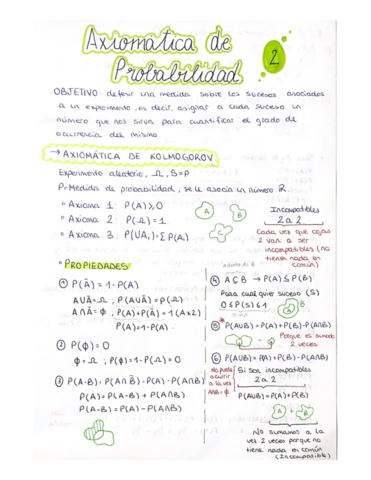 Axiomática de
Probabilidad.
2
OBJETIVO: definir una medida sobre los sucesos asociados
a un experimento, es decir, asignar a cada suceso un
número que nos sirva para cuantificar el grado de
ocurrencia del mismo
→ AXIOMÁTICA DE KOLMOGOROV
Experimento aleatorio, Ω, S=P
P=Medida de probabilidad, se le asocia un número R
Axioma 1: P(A)≥0
Axioma 2: P(Ω)=1
Axioma 3: P(UAi)=ΣP(A)
A
B
C
Incompatibles
2 a 2
Cada vez que cojas
2 van a ser
incompatibles (no
tienen nada en
común)
PROPIEDADES
① P(Ā)=1-P(A)
AUĀ=Ω ; P(AUĀ)=P(Ω)
A∩Ā=ϕ ; P(A)+P(Ā)=1 (A×2)
P(Ā)=1-P(A)
② P(ϕ)=0
ϕ=Ω̄ ; P(ϕ)=1-P(Ω)=0
③ P(A-B)=P(A∩B̄)=P(A)-P(A∩B)
P(A)=P(A-B)+P(A∩B)
P(A-B)=P(A)-P(A∩B)
④ A⊆B → P(A)≤P(B)
Para cualquier suceso (S)
0≤P(S)≤1
B
⑤ P(AUB)=P(A)+P(B)-P(A∩B)
Porque es sumado
2 veces
⑥ P(AUB)=P(A)+P(B)-P(A∩B)
No puede
ocurrir
a la vez
A∩B=ϕ
Si son incompatibles
2 a 2
P(AUB)=P(A)+P(B)
A + B
No sumamos a la
vez 2 veces porque no
tienen nada en común
(Incompatible)